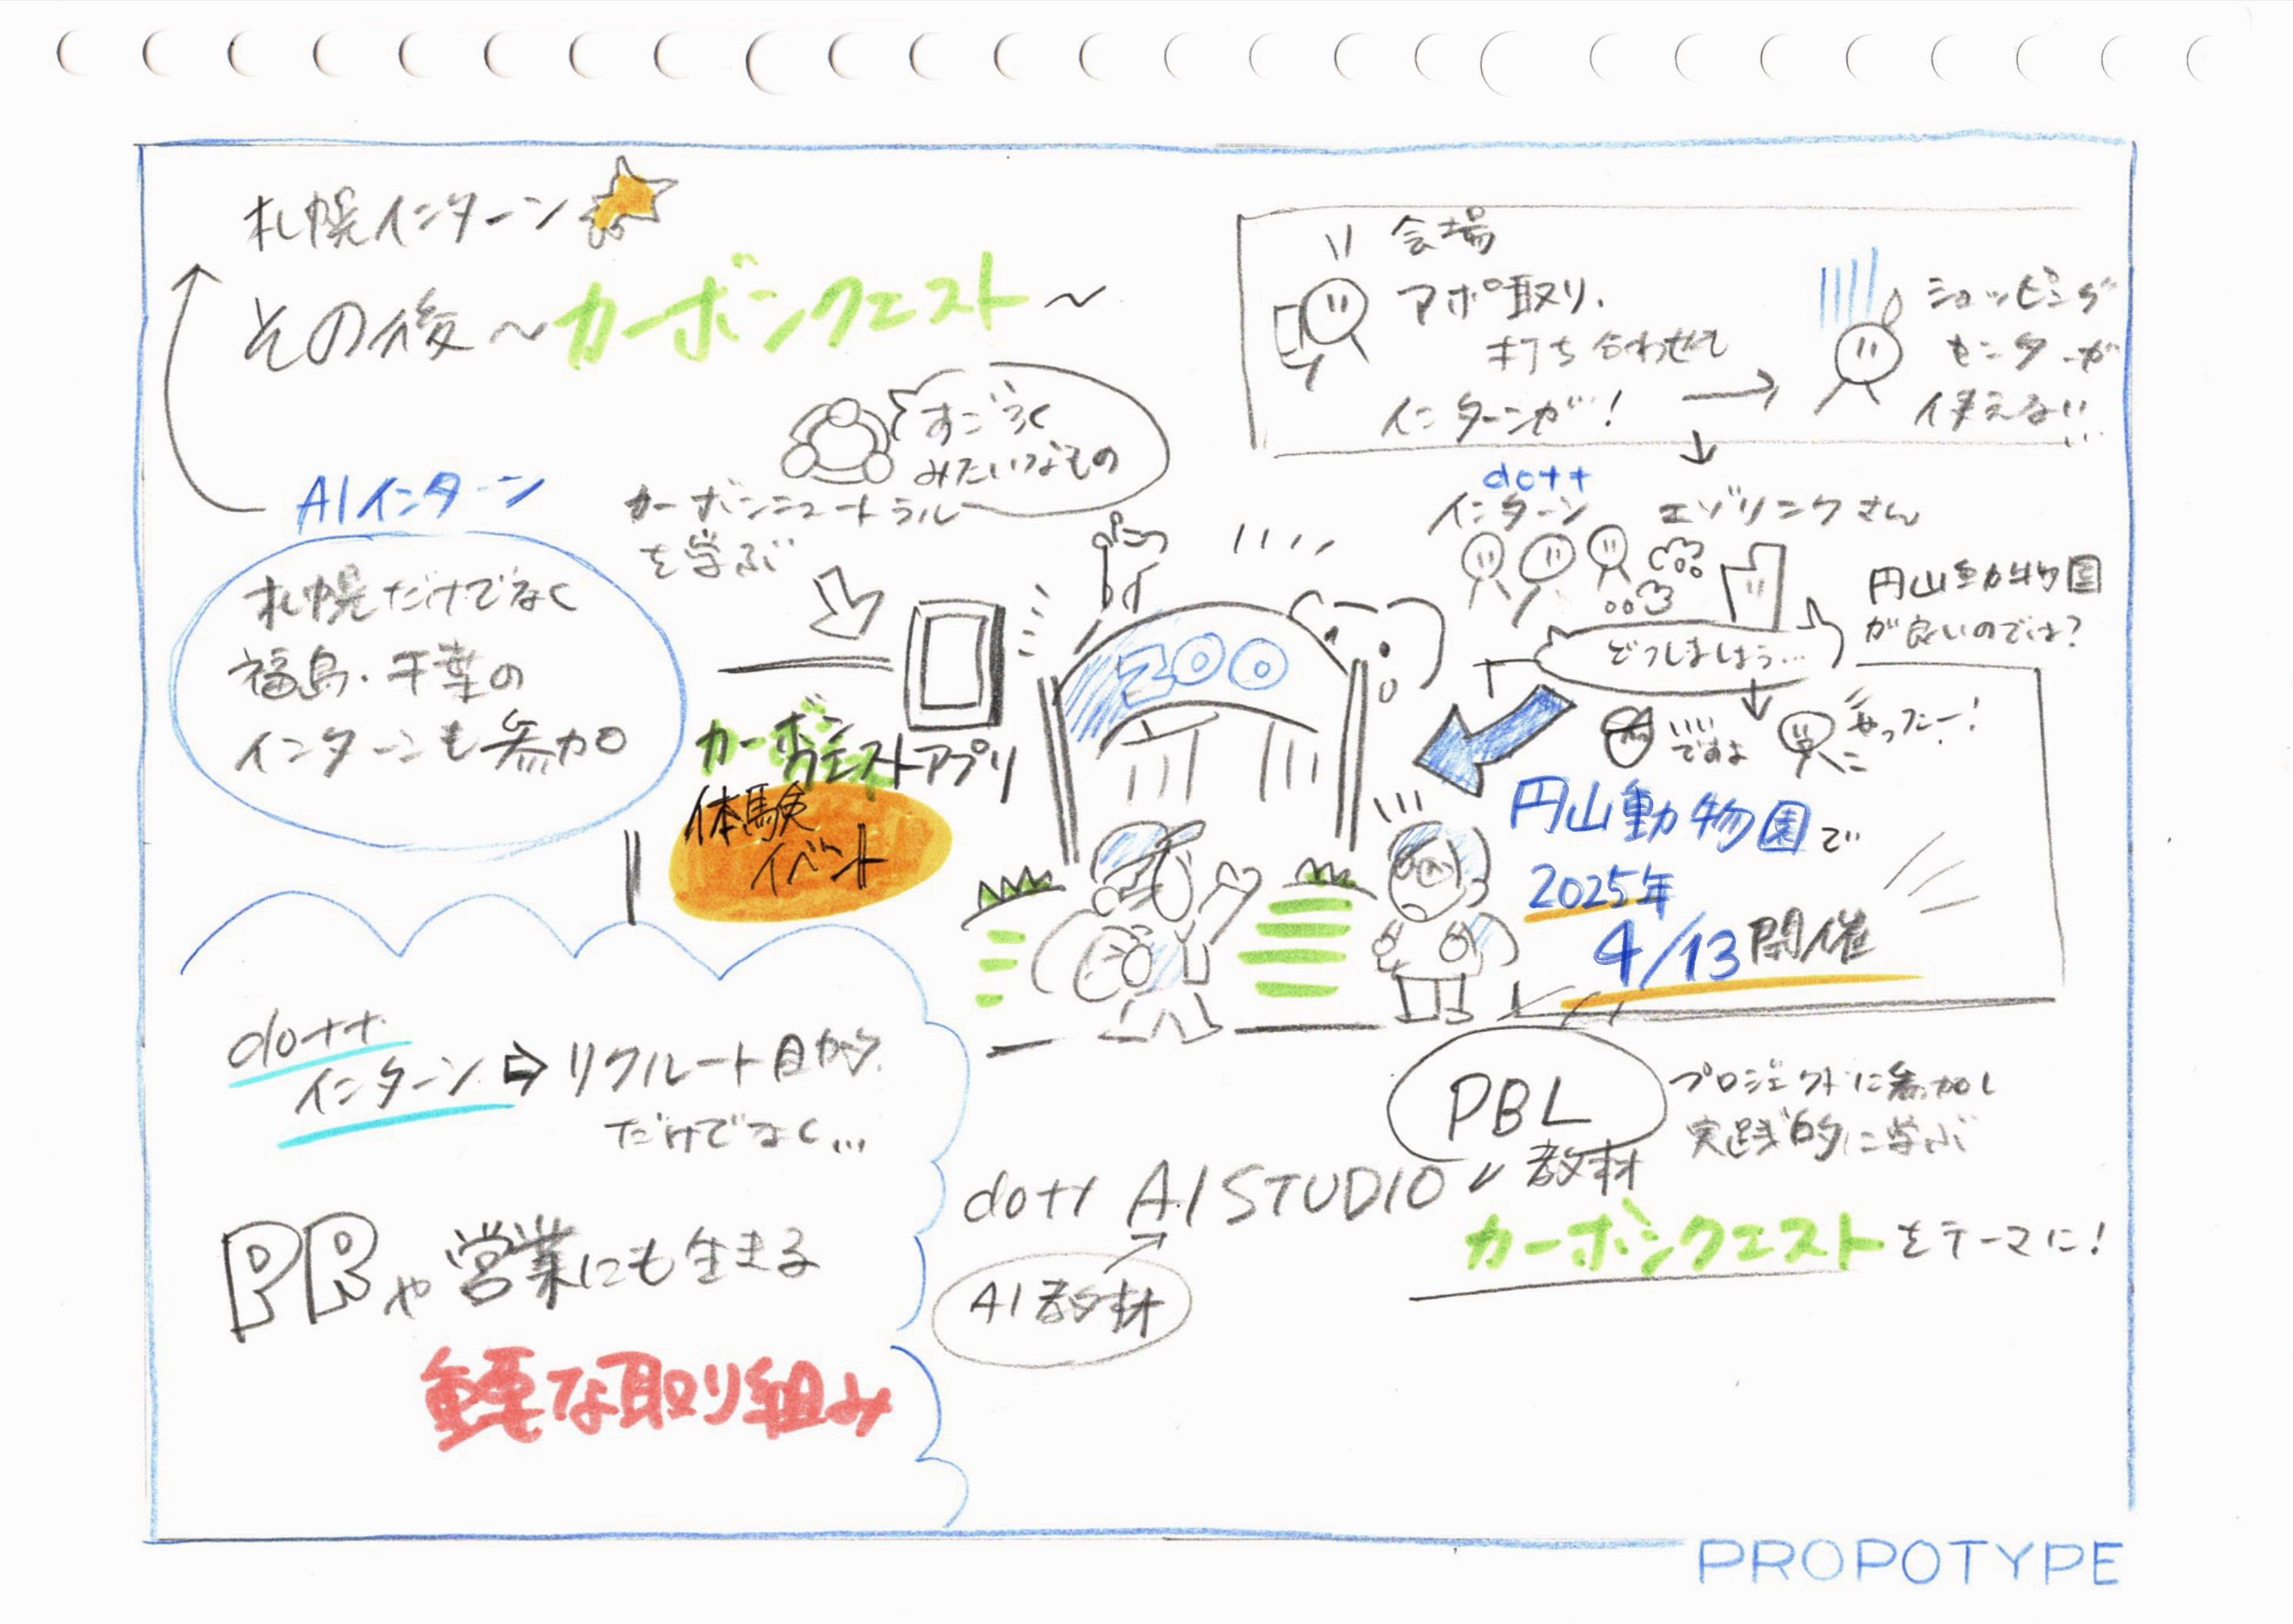 札幌インターン
その後〜カーボンクエスト〜
AIインターン
札幌だけでなく
福島・千葉の
インターンも参加
すごろく
みたいなもの
カーボンニュートラル
を学ぶ
カーボンクエストアプリ
体験
イベント
ZOO
会場
アポ取り、
打ち合わせも
インターンが!
ショッピング
センターが
使えない…
dott
インターン
エゾリンクさん
どうしましょう…
円山動物園
が良いのでは?
いい
ですよ
やったー!
円山動物園で
2025年
4/13開催
dott
インターン⇨リクルート目的
だけでなく…
PRや営業にも生きる
重要な取り組み
PBL
教材
プロジェクトに参加し
実践的に学ぶ
dott AI STUDIO
AI教材
カーボンクエストをテーマに!
PROPOTYPE